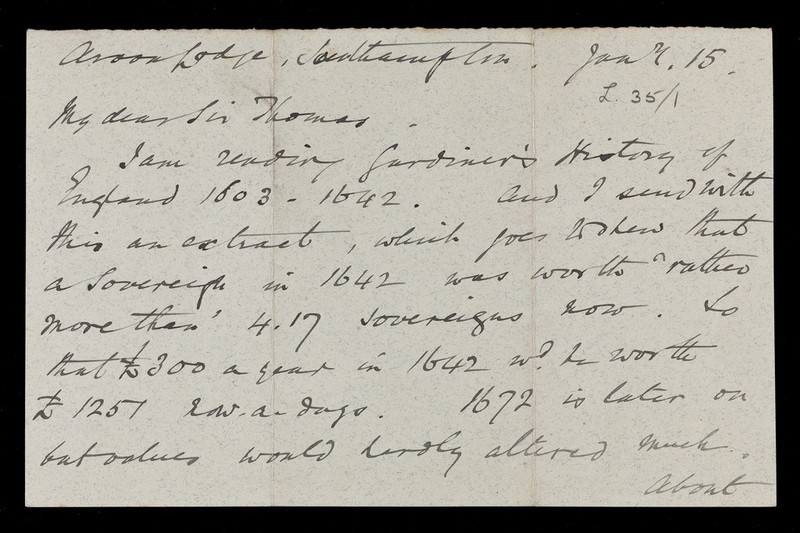 Lodge, Southampton. Jany. 15.
L. 35/1
My dear Sir Thomas.
I am reading Gardiner's History of
England 1603 - 1642. And I send with
this an extract, which goes to shew that
a Sovereign in 1642 was worth "rather
more than" 4.17 sovereigns now. So
that £300 a year in 1642 wd. be worth
£1251 now-a-days. 1672 is later on
but values would hardly altered much.
About